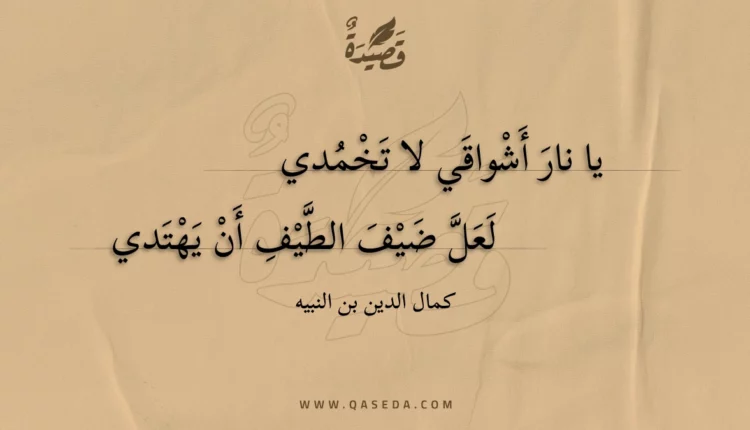 قَصِيدَةٌ
يا نارَ أَشْواقَي لا تَخْمُدي
لَعَلَّ ضَيْفَ الطَّيْفِ أَنْ يَهْتَدي
كمال الدين بن النبيه
WWW.QASEDA.COM